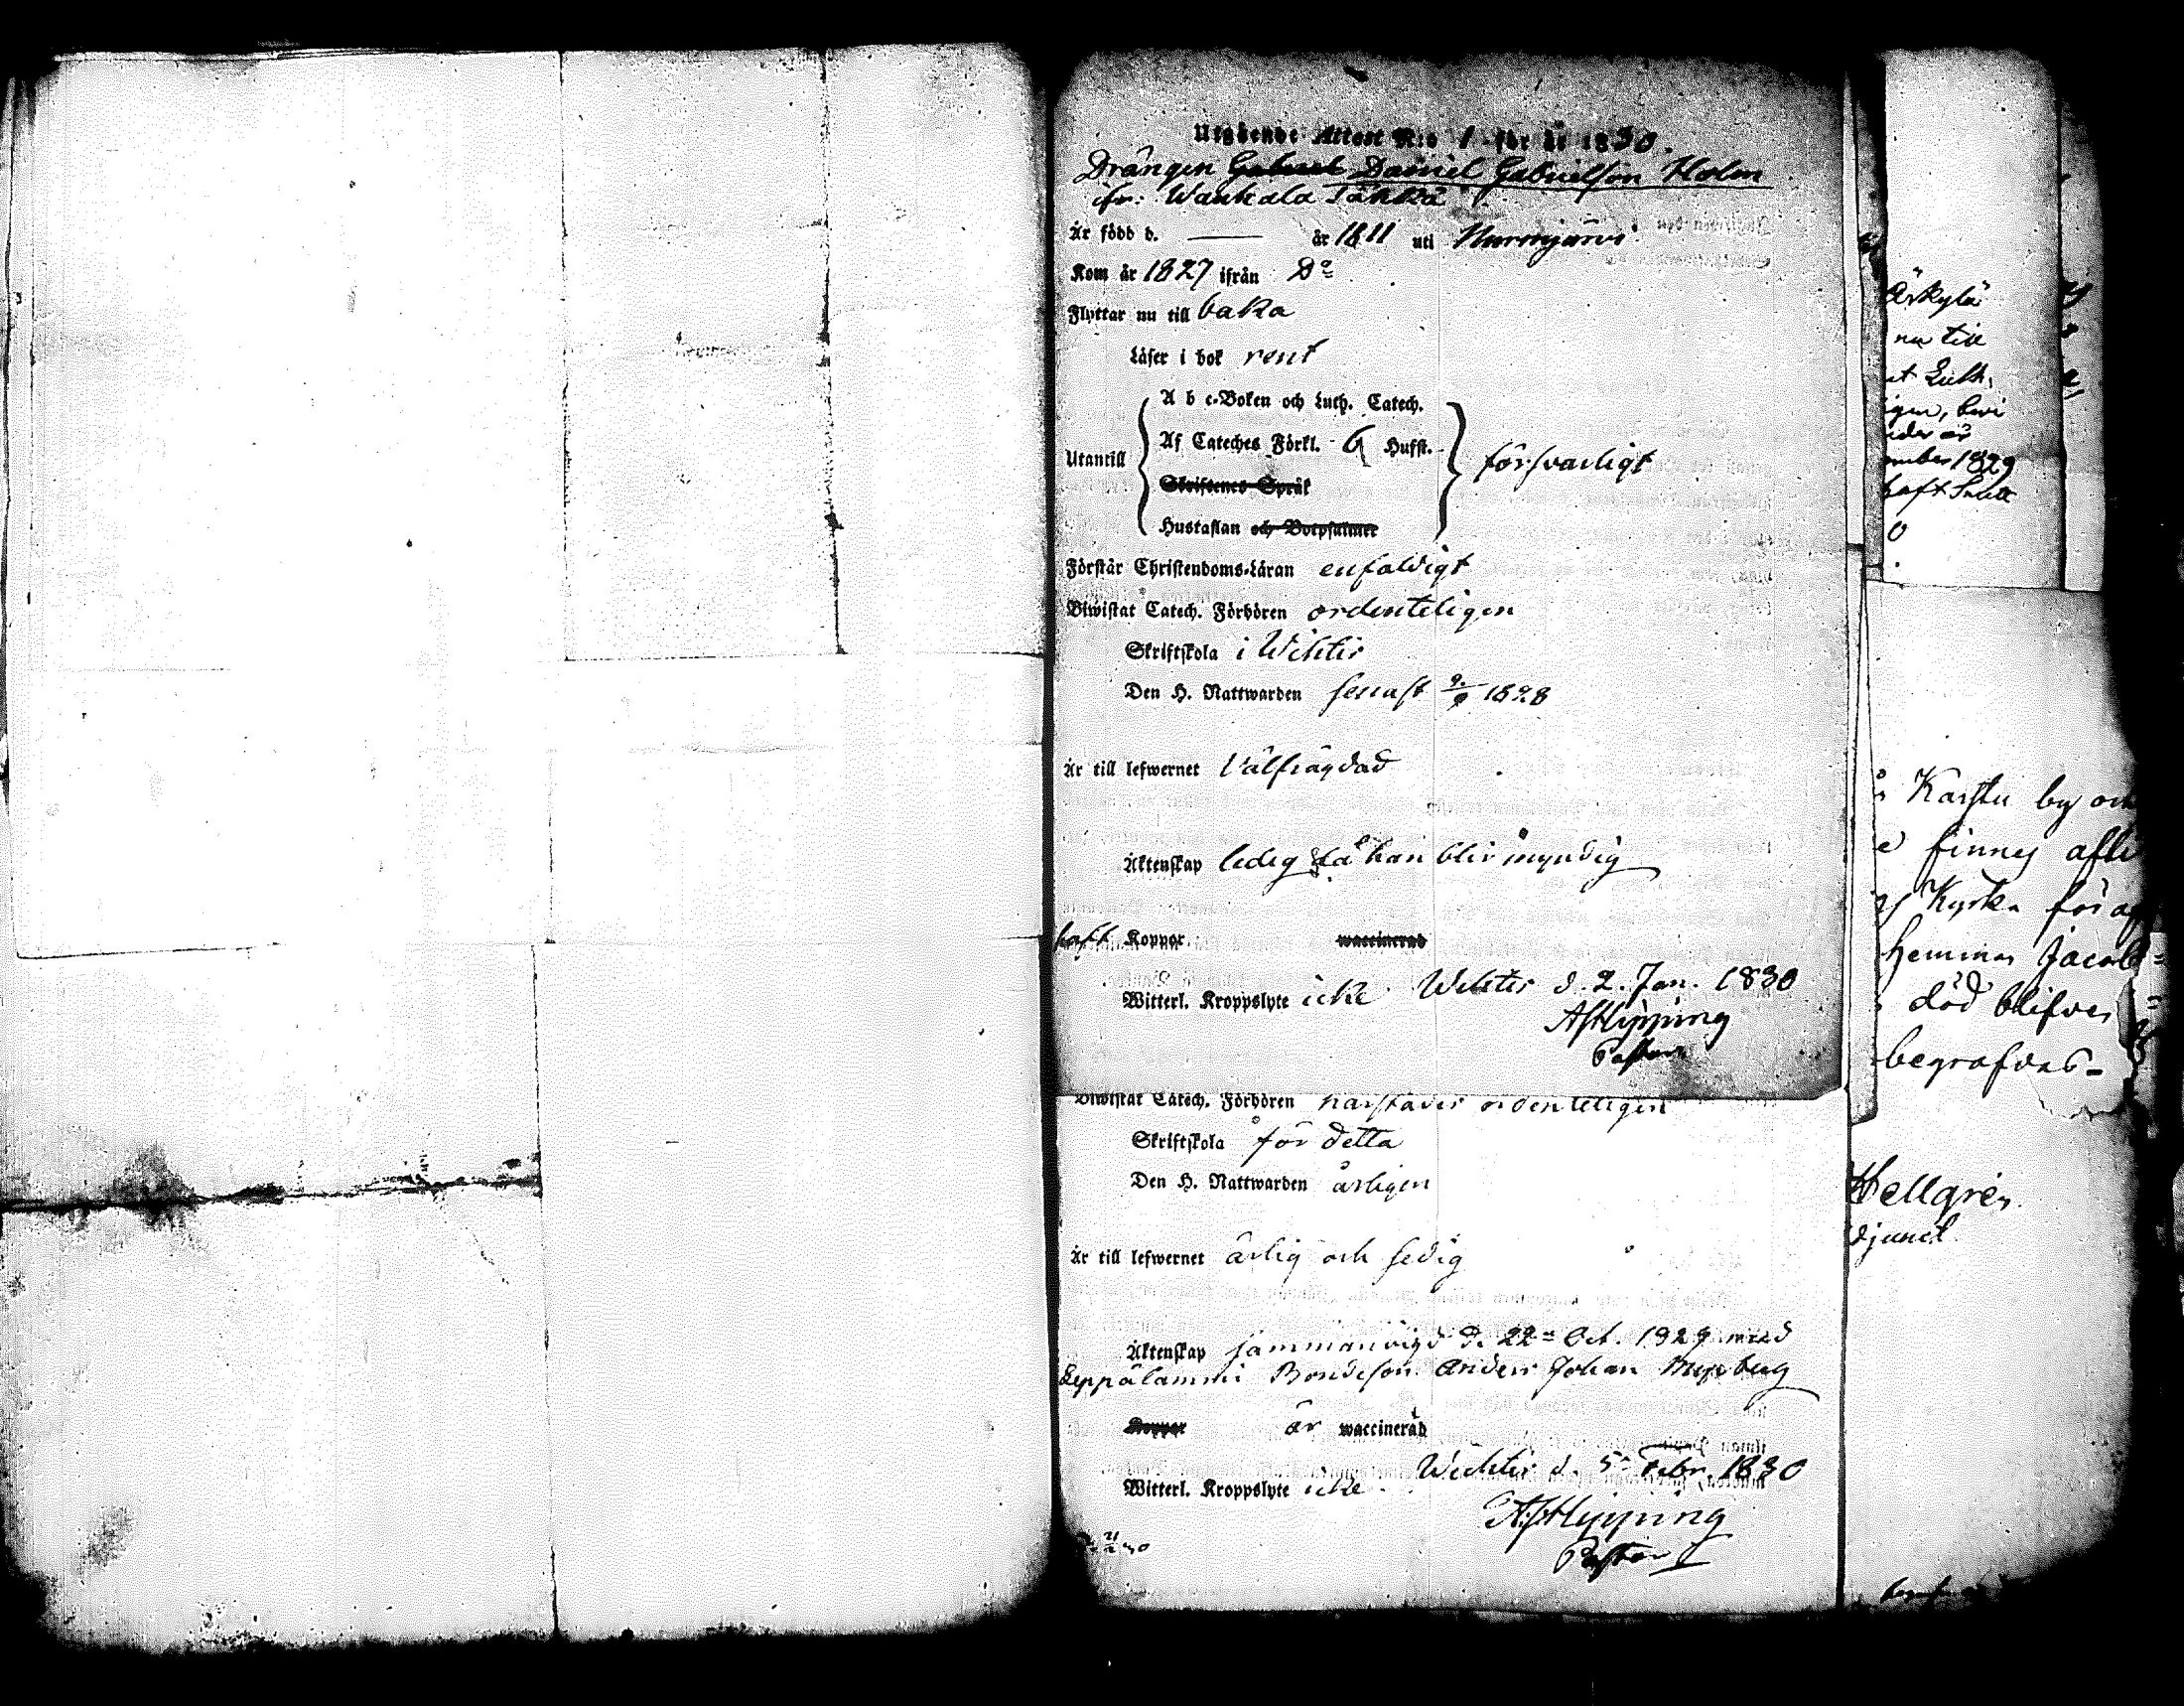 Utgående Attest N:o 1 för år 1830.
Drängen Gabriel Daniel Gabrielson Holm
ifr: Wanhala Takka
Är född d. —— år 1811 uti Nurmijärvi
Kom år 1827 ifrån Do
Flyttar nu till baka
Läser i bok rent
A b c-Boken och Luth. Catech.
Af Cateches Förkl. 6 Hufst.
Utantill försvarligt
Skriftenes Språk
Hustaflan och Botpsalmer
Förstår Christendoms-Läran enfaldigt
Biwistat Catech. Förhören ordenteligen
Skriftskola i Wichtis
Den H. Nattwarden senast 1828
Är till lefwernet Välfrägdad
Äktenskap ledig då han blir myndig
haft Koppor waccinerad
Witterl. Kroppslyte icke Wichtis d. 2. Jan. 1830
AJHipping
Pastor
Biwistat Catech. Förhören härstädes ordenteligen
Skriftskola för detta
Den H. Nattwarden årligen
Är till lefwernet ärlig och sedig
Äktenskap sammanvigd d. 22 Oct. 1829 med
Seppälammi Bondeson Anders Johan
Koppor är waccinerad
Witterl. Kroppslyte icke Wichtis d. 5 Febr. 1830
AJHipping
Pastor
Askylä
nu till
Luth.
1829
haft
0
Karstu by och
finnes
Kyrka för
hemman Jacob
död blifven
begrafvas
Hellgrén
djunct